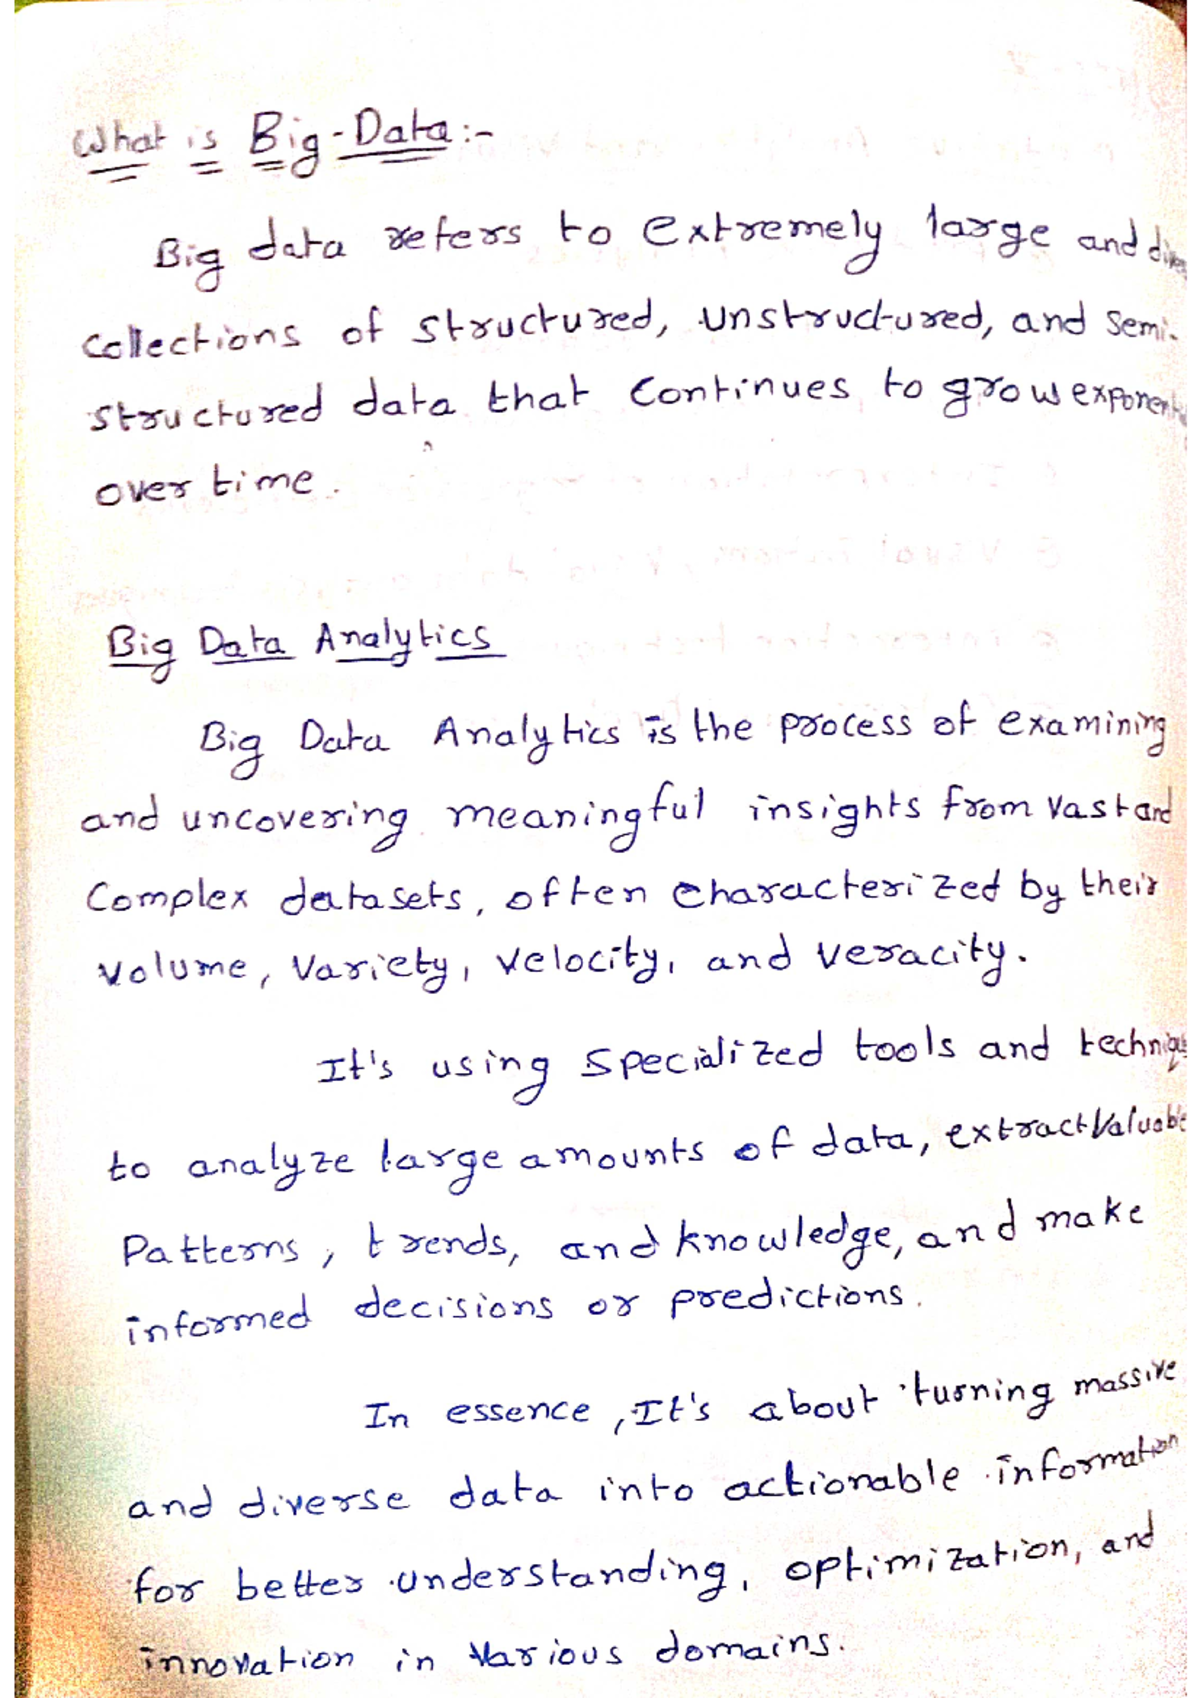 What is Big-Data:-
Big data refers to extremely large and
Collections of structured, unstructured, and Semi-
structured data that continues to grow
over time.
Big Data Analytics
Big Data Analytics is the process of examining
and uncovering meaningful insights from vast and
Complex datasets, often characterized by their
volume, variety, velocity, and veracity.
It's using specialized tools and
to analyze large amounts of data, extract Valuable
Patterns, trends, and knowledge, and make
informed decisions or predictions.
In essence, It's about turning massive
and diverse data into actionable information
for better understanding, optimization, and
innovation in various domains.